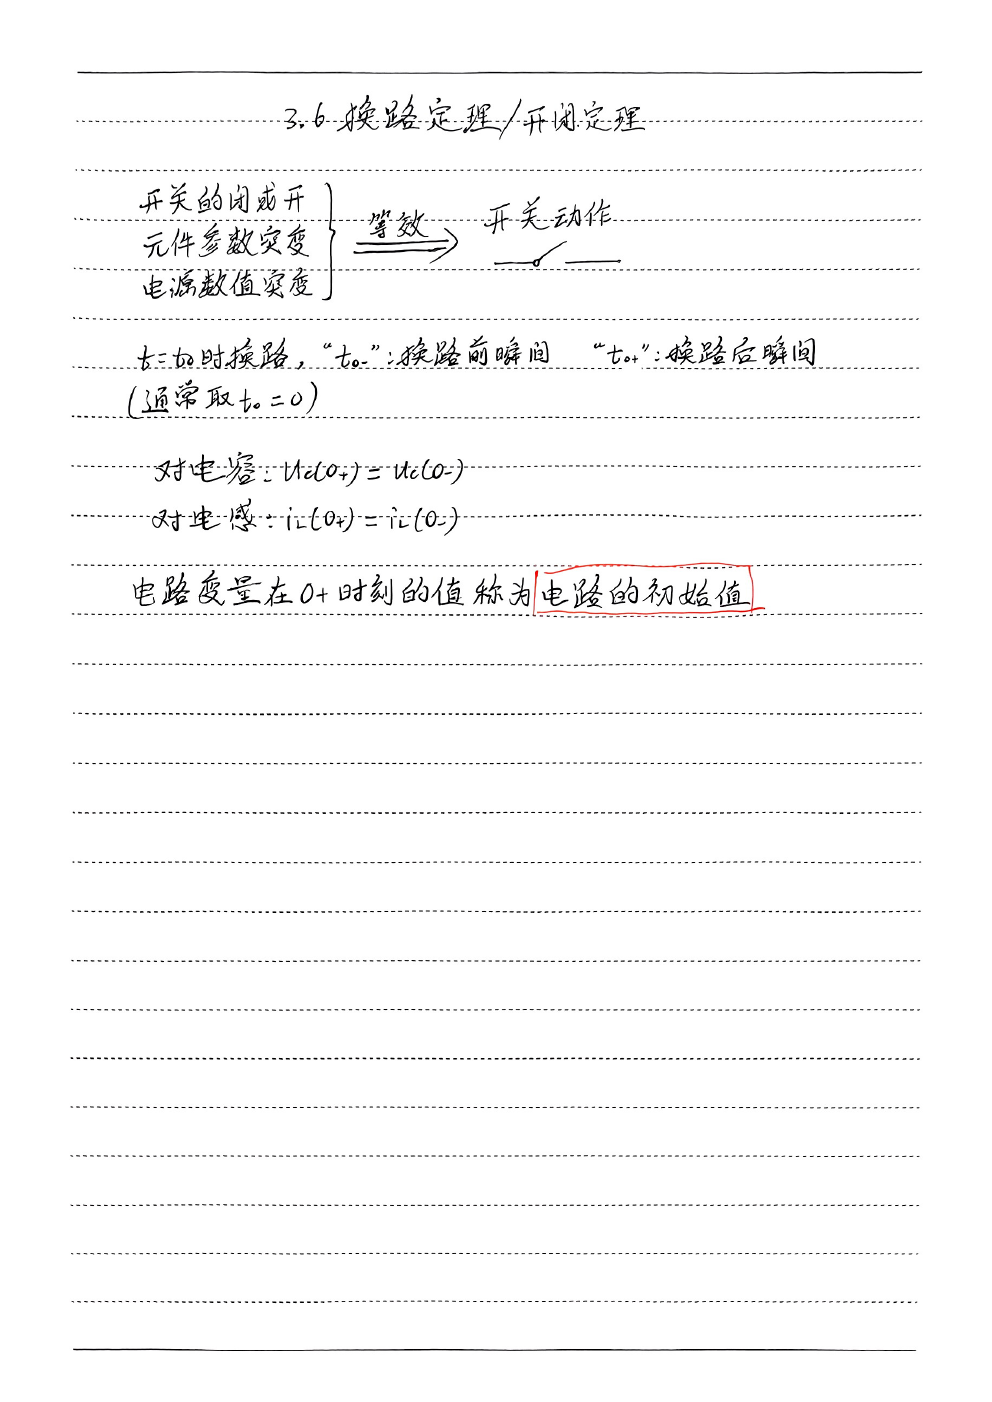 3.6 换路定理/开闭定理
开关的闭或开
元件参数突变
电源数值突变
等效
开关动作
t=t₀时换路，“t₀₋”：换路前瞬间 “t₀₊”：换路后瞬间
(通常取t₀=0)
对电容：u_c(0₊)=u_c(0₋)
对电感：i_L(0₊)=i_L(0₋)
电路变量在0+时刻的值称为电路的初始值